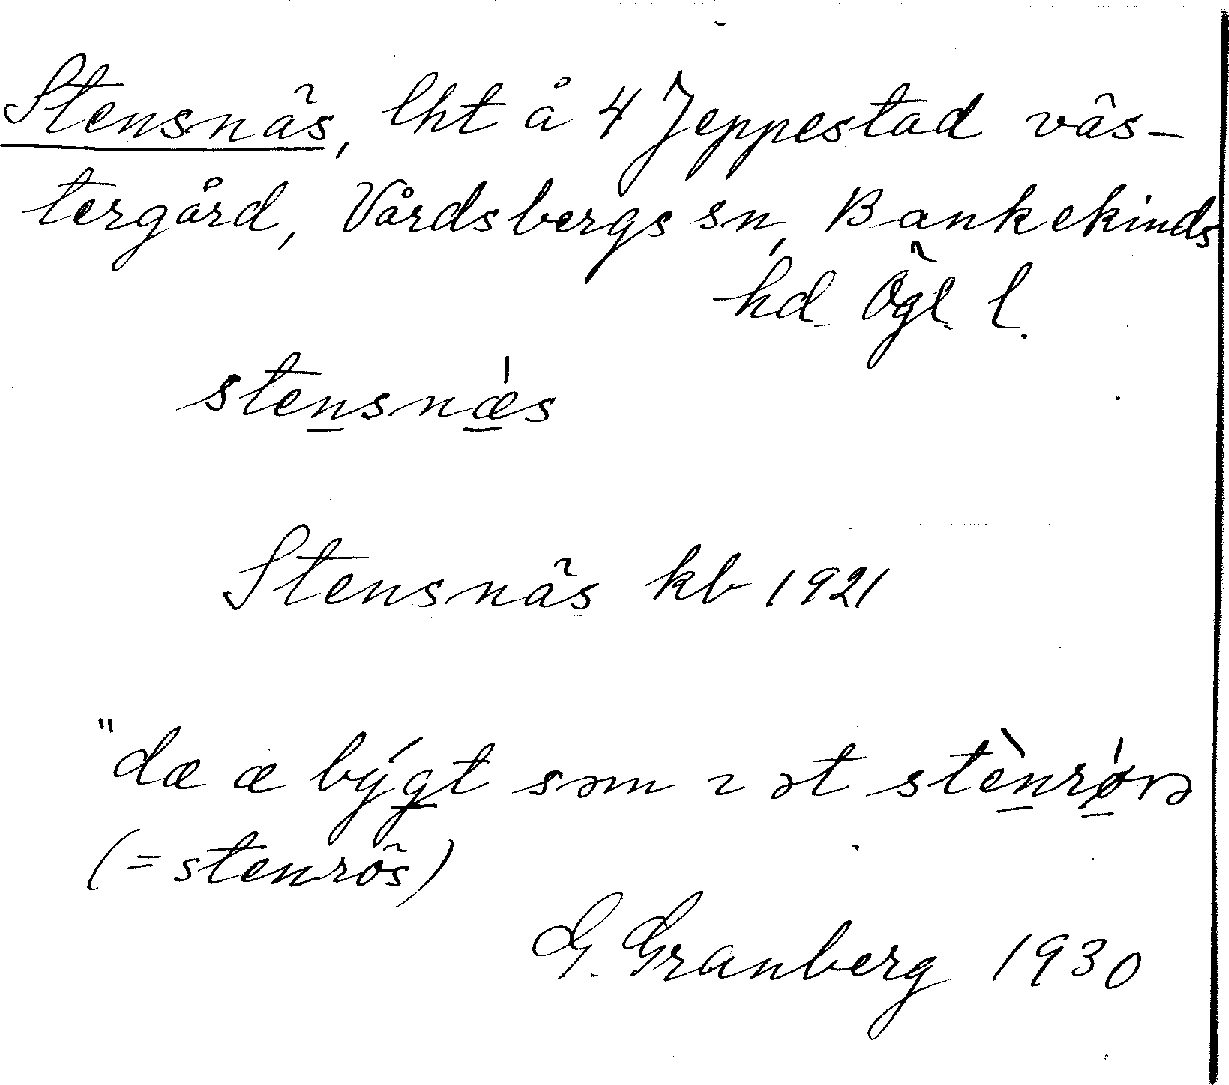 Stensnäs, lht å 4 Jeppestad väs-
tergård, Vårdsbergs sn, Bankekinds
hd Ögl. l.
stensnǽs
Stensnäs kb 1921
"dæ æ býgt som ɿ ət stènrǿrə
(= stenrös)
G. Granberg 1930